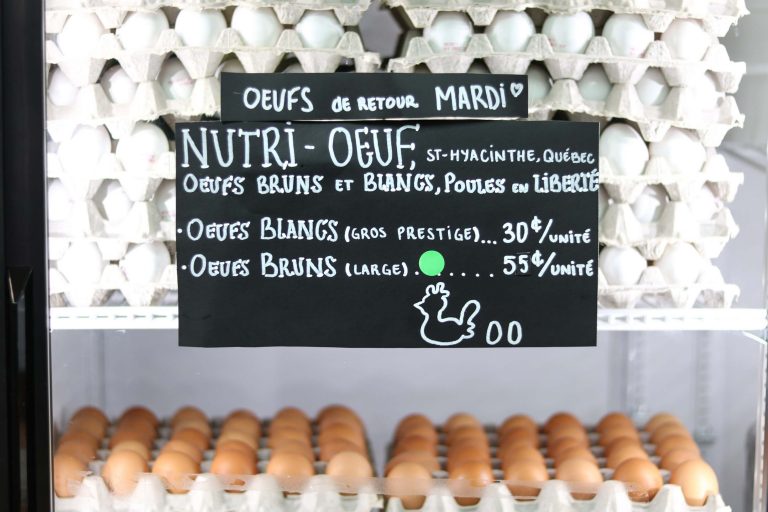 OEUFS DE RETOUR MARDI ♡
NUTRI-OEUF, ST-HYACINTHE, QUÉBEC
OEUFS BRUNS ET BLANCS, POULES EN LIBERTÉ
• OEUFS BLANCS (GROS PRESTIGE)... 30¢/UNITÉ
• OEUFS BRUNS (LARGE)....... 55¢/UNITÉ